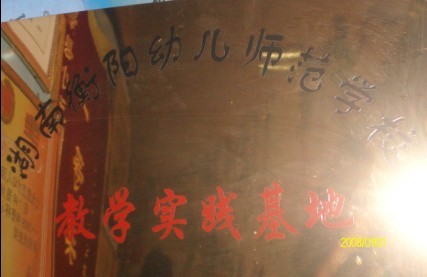 湖南衡阳幼儿师范学校
教学实践基地